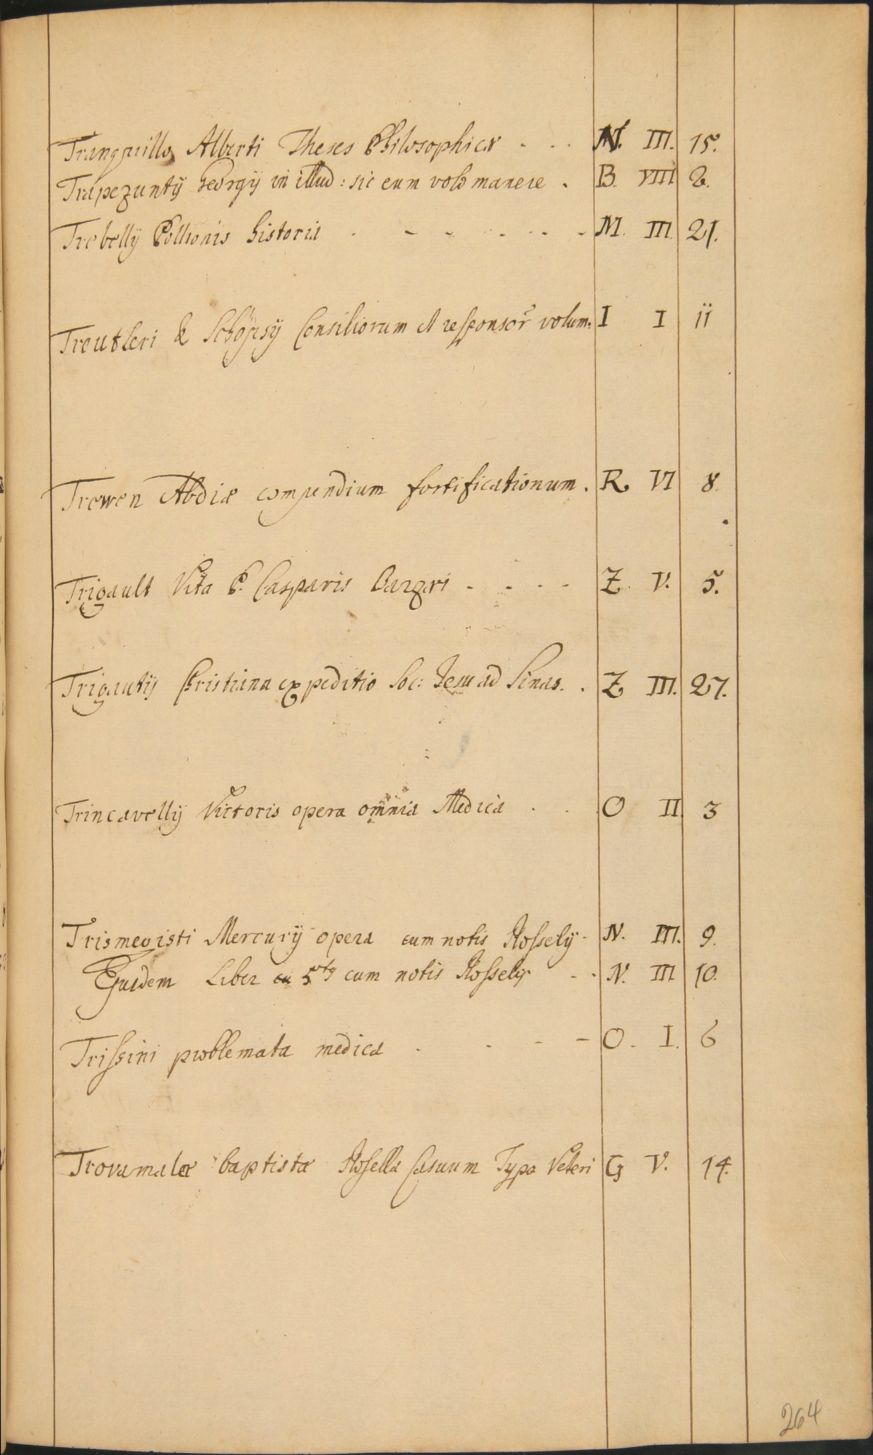 Tranquillo Alberti Theses Philosophicæ - - - N. III. 15.
Trapezuntÿ Georgÿ in illud: sic eum volo manere . B. VIII 2.
Trebellÿ Pollionis historia - - - - - - M. III. 21.
Treutleri & Schöpsÿ Consiliorum et responsor̃ volum: I I ii
Trewen Abdiæ compendium fortificationum . R VI 8.
Trigault Vita P. Casparis Barzæi - - - - Z V. 5.
Trigautÿ Christiana expeditio Soc: Jesu ad Sinas. . Z III. 27.
Trincavellÿ Victoris opera omnia Medica - - O II 3
Trismegisti Mercurÿ opera cum notis Rosselÿ - N. III. 9.
Ejusdem Liber 5tus cum notis Rosselÿ - - N. III 10.
Trissini problemata medica - - - - O. I. 6
Trovamalæ baptistæ Rosella Casuum Typo Veteri G V. 14.
264